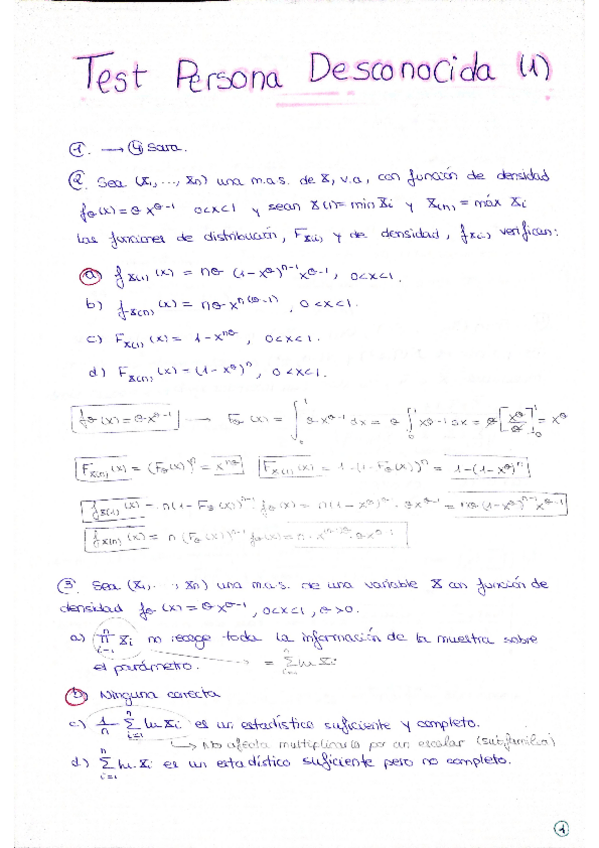 Test Persona Desconocida (1)
①. → ④ Sara.
② Sea (X₁, ..., Xn) una m.a.s. de X, v.a, con función de densidad
fθ(x) = θ x^(θ-1) 0<x<1 y sean X(1) = min Xi y X(n) = máx Xi
Las funciones de distribución, F_X(i), y de densidad, f_X(i), verifican:
a) f_X(1)(x) = nθ (1-x^θ)^(n-1) x^(θ-1), 0<x<1.
b) f_X(n)(x) = nθ x^(n(θ-1)), 0<x<1.
c) F_X(1)(x) = 1-x^(nθ), 0<x<1.
d) F_X(n)(x) = (1-x^θ)^n, 0<x<1.
fθ(x) = θ·x^(θ-1) → Fθ(x) = ∫₀¹ θ x^(θ-1) dx = θ ∫₀¹ x^(θ-1) dx = θ [x^θ/θ]₀¹ = x^θ
F_X(n)(x) = (Fθ(x))^n = x^(nθ) F_X(1)(x) = 1-(1-Fθ(x))^n = 1-(1-x^θ)^n
f_X(1)(x) = n(1-Fθ(x))^(n-1) · fθ(x) = n(1-x^θ)^(n-1) · θx^(θ-1) = nθ(1-x^θ)^(n-1) x^(θ-1)
f_X(n)(x) = n (Fθ(x))^(n-1) fθ(x) =
③ Sea (X₁, ..., Xn) una m.a.s. de una variable X con función de
densidad fθ(x) = θx^(θ-1), 0<x<1, θ>0.
a) ∏_(i=1)^n Xi no recoge toda la información de la muestra sobre
el parámetro. = Σ_(i=1)^n ln Xi
b) Ninguna correcta
c) 1/n Σ_(i=1)^n ln Xi es un estadístico suficiente y completo.
↳ No afecta multiplicarlo por un escalar (subfamilia)
d) Σ_(i=1)^n ln Xi es un estadístico suficiente pero no completo.
1